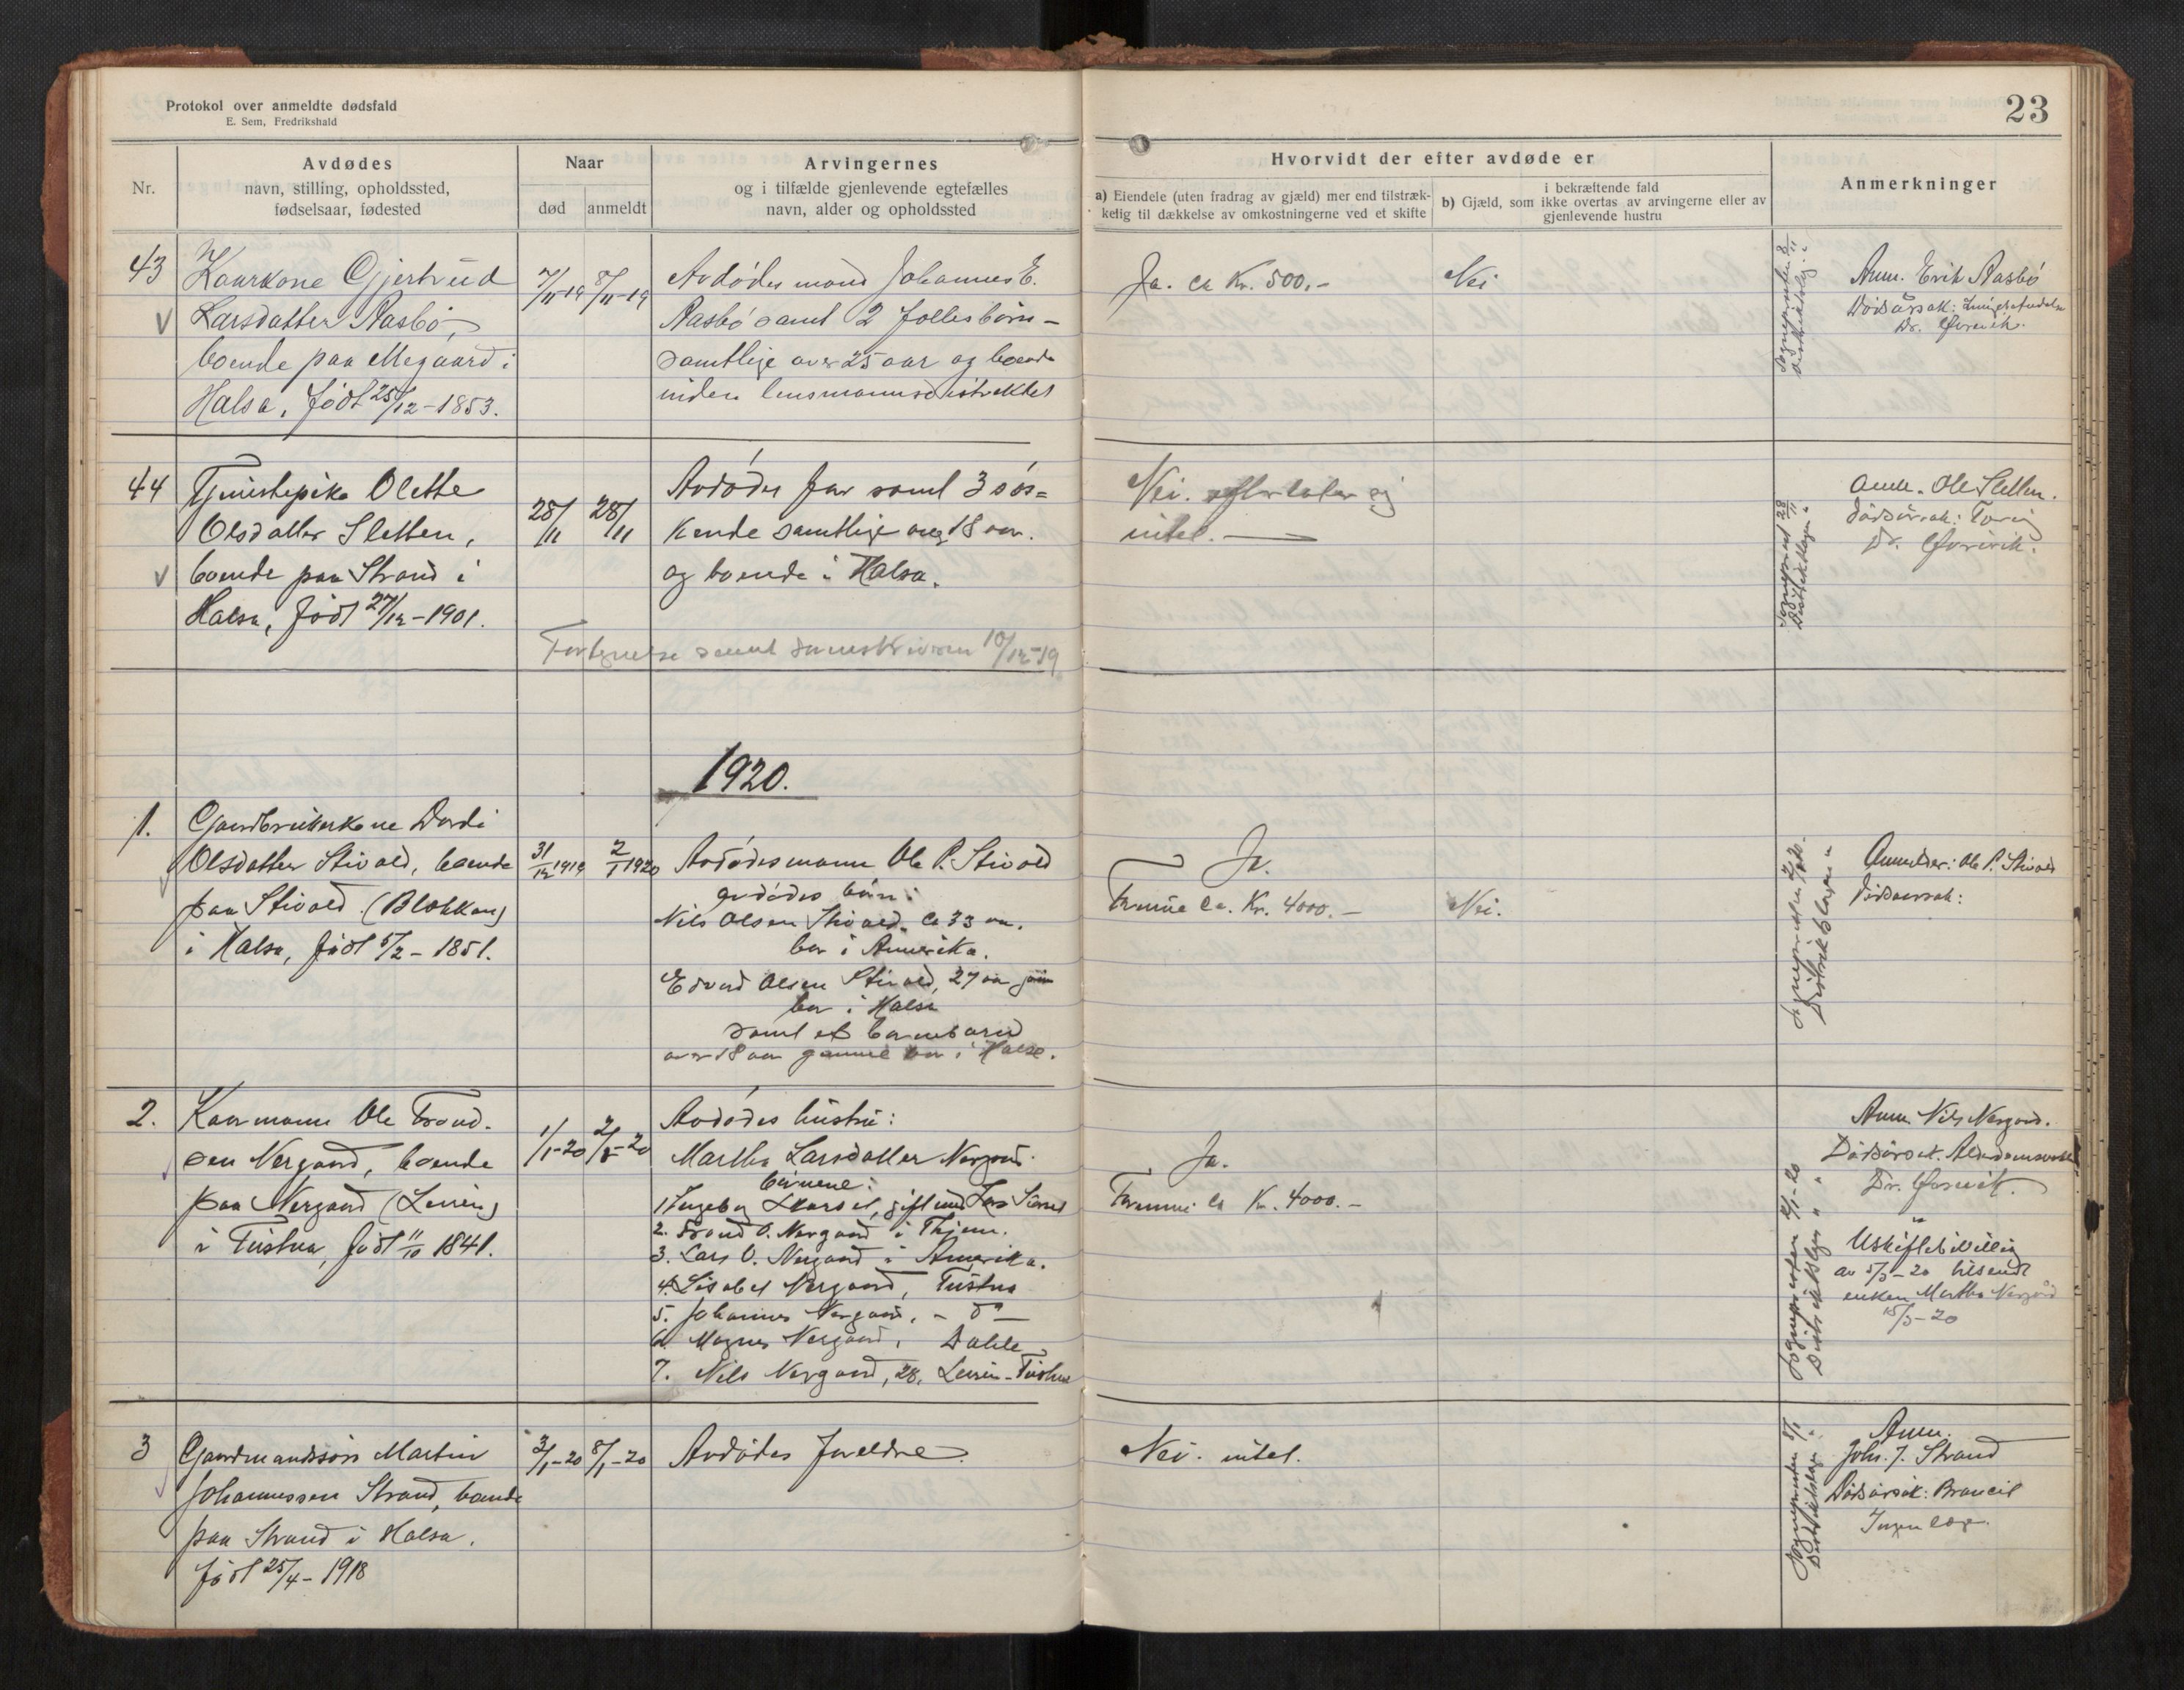 Protokol over anmeldte dødsfald
E. Sem, Fredrikshald
23
Nr.
Avdødes
navn, stilling, opholdssted,
fødselsaar, fødested
Naar
død
anmeldt
Arvingernes
og i tilfælde gjenlevende egtefælles
navn, alder og opholdssted
Hvorvidt der efter avdøde er
a) Eiendele (uten fradrag av gjæld) mer end tilstræk-
kelig til dækkelse av omkostningerne ved et skifte
i bekræftende fald
b) Gjæld, som ikke overtas av arvingerne eller av
gjenlevende hustru
Anmerkninger
43
Kaarkone Gjertrud
Larsdatter Aasbö,
boende paa Megaard i
Halsa, födt 25/12-1853.
7/11-19
8/11-19
Avdödes mand Johannes E.
Aasbö samt 2 fellesbörn -
samtlige over 25 aar og boende
inden lensmannsdistriktet
Ja. ca Kr. 500.-
Nei
Sognepresten 8/11
Distriktslæg. "
Anm. Erik Aasbö
Dödsårsak:
Dr. Örsvik.
44
Tjenestepike Olette
Olsdatter Sletten,
boende paa Strand i
Halsa, födt 27/12-1901.
28/11
28/11
Avdödes far samt 3 sös=
kende samtlige over 18 aar.
og boende i Halsa.
Fortegnelse sendt sorenskriveren 10/12-19
Nei. efterlater sig
intet.
Sogneprest 28/11
Distriktslægen "
Anm. Ole Sletten.
Dödsårsak: Tæring
Dr. Örsvik.
1920.
1.
Gaardbrukerkone Dordi
Olsdatter Stivold, boende
paa Stivold (Blokkan)
i Halsa, födt 5/2-1851.
31/12 1919
2/1 1920
Avdödes mann Ole P. Stivold
avdödes börn:
Nils Olsen Stivold ca 33 aar.
bor i Amerika.
Edvard Olsen Stivold, 27 aar
bor i Halsa
samt et barnebarn
over 18 aar gammel bor i Halsa.
Ja.
Formue ca. Kr. 4000.-
Nei.
Sognepresten 2/1-20.
Distriktslægen "
Anmelder: Ole P. Stivold
Dödsaarsak:
2.
Kaarmann Ole Trond-
sen Nergaard, boende
paa Nergaard (Leirin)
i Tustna, födt 11/10 1841.
1/1-20
2/1-20
Avdödes hustru:
Martha Larsdatter Nergaard.
börnene:
1. Ingeborg gift med Lars
2. Trond O. Nergaard i
3. Lars O. Nergaard i Amerika.
4. Lisabet Nergaard, Tustna
5. Johannes Nergaard, - do -
6. Magnus Nergaard, Dalile
7. Nils Nergaard, 28, Leirin-Tustna
Ja.
Formue ca Kr. 4000.-
Sognepresten 2/1-20
Distriktslægen " "
Anm. Nils Nergaard.
Dödsårsak. Alderdomssvakh
Dr. Örsvik.
"
Uskiftebevilling
av 5/3-20 tilsendt
enken Martha Nergård
15/3-20
3
Gaardmandssön Martin
Johannessen Strand, boende
paa Strand i Halsa.
födt 25/4-1918
3/1-20
8/1-20
Avdödes foreldre
Nei. intet.
Sognepresten 8/1
Distriktslægen "
Anm.
Johs. J. Strand
Dödsårsak: Broncit
Ingen læge.